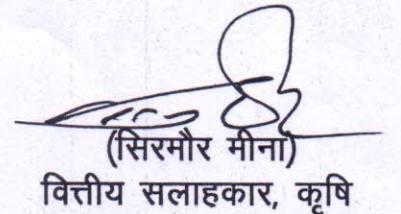 (सिरमौर मीना)
वित्तीय सलाहकार, कृषि